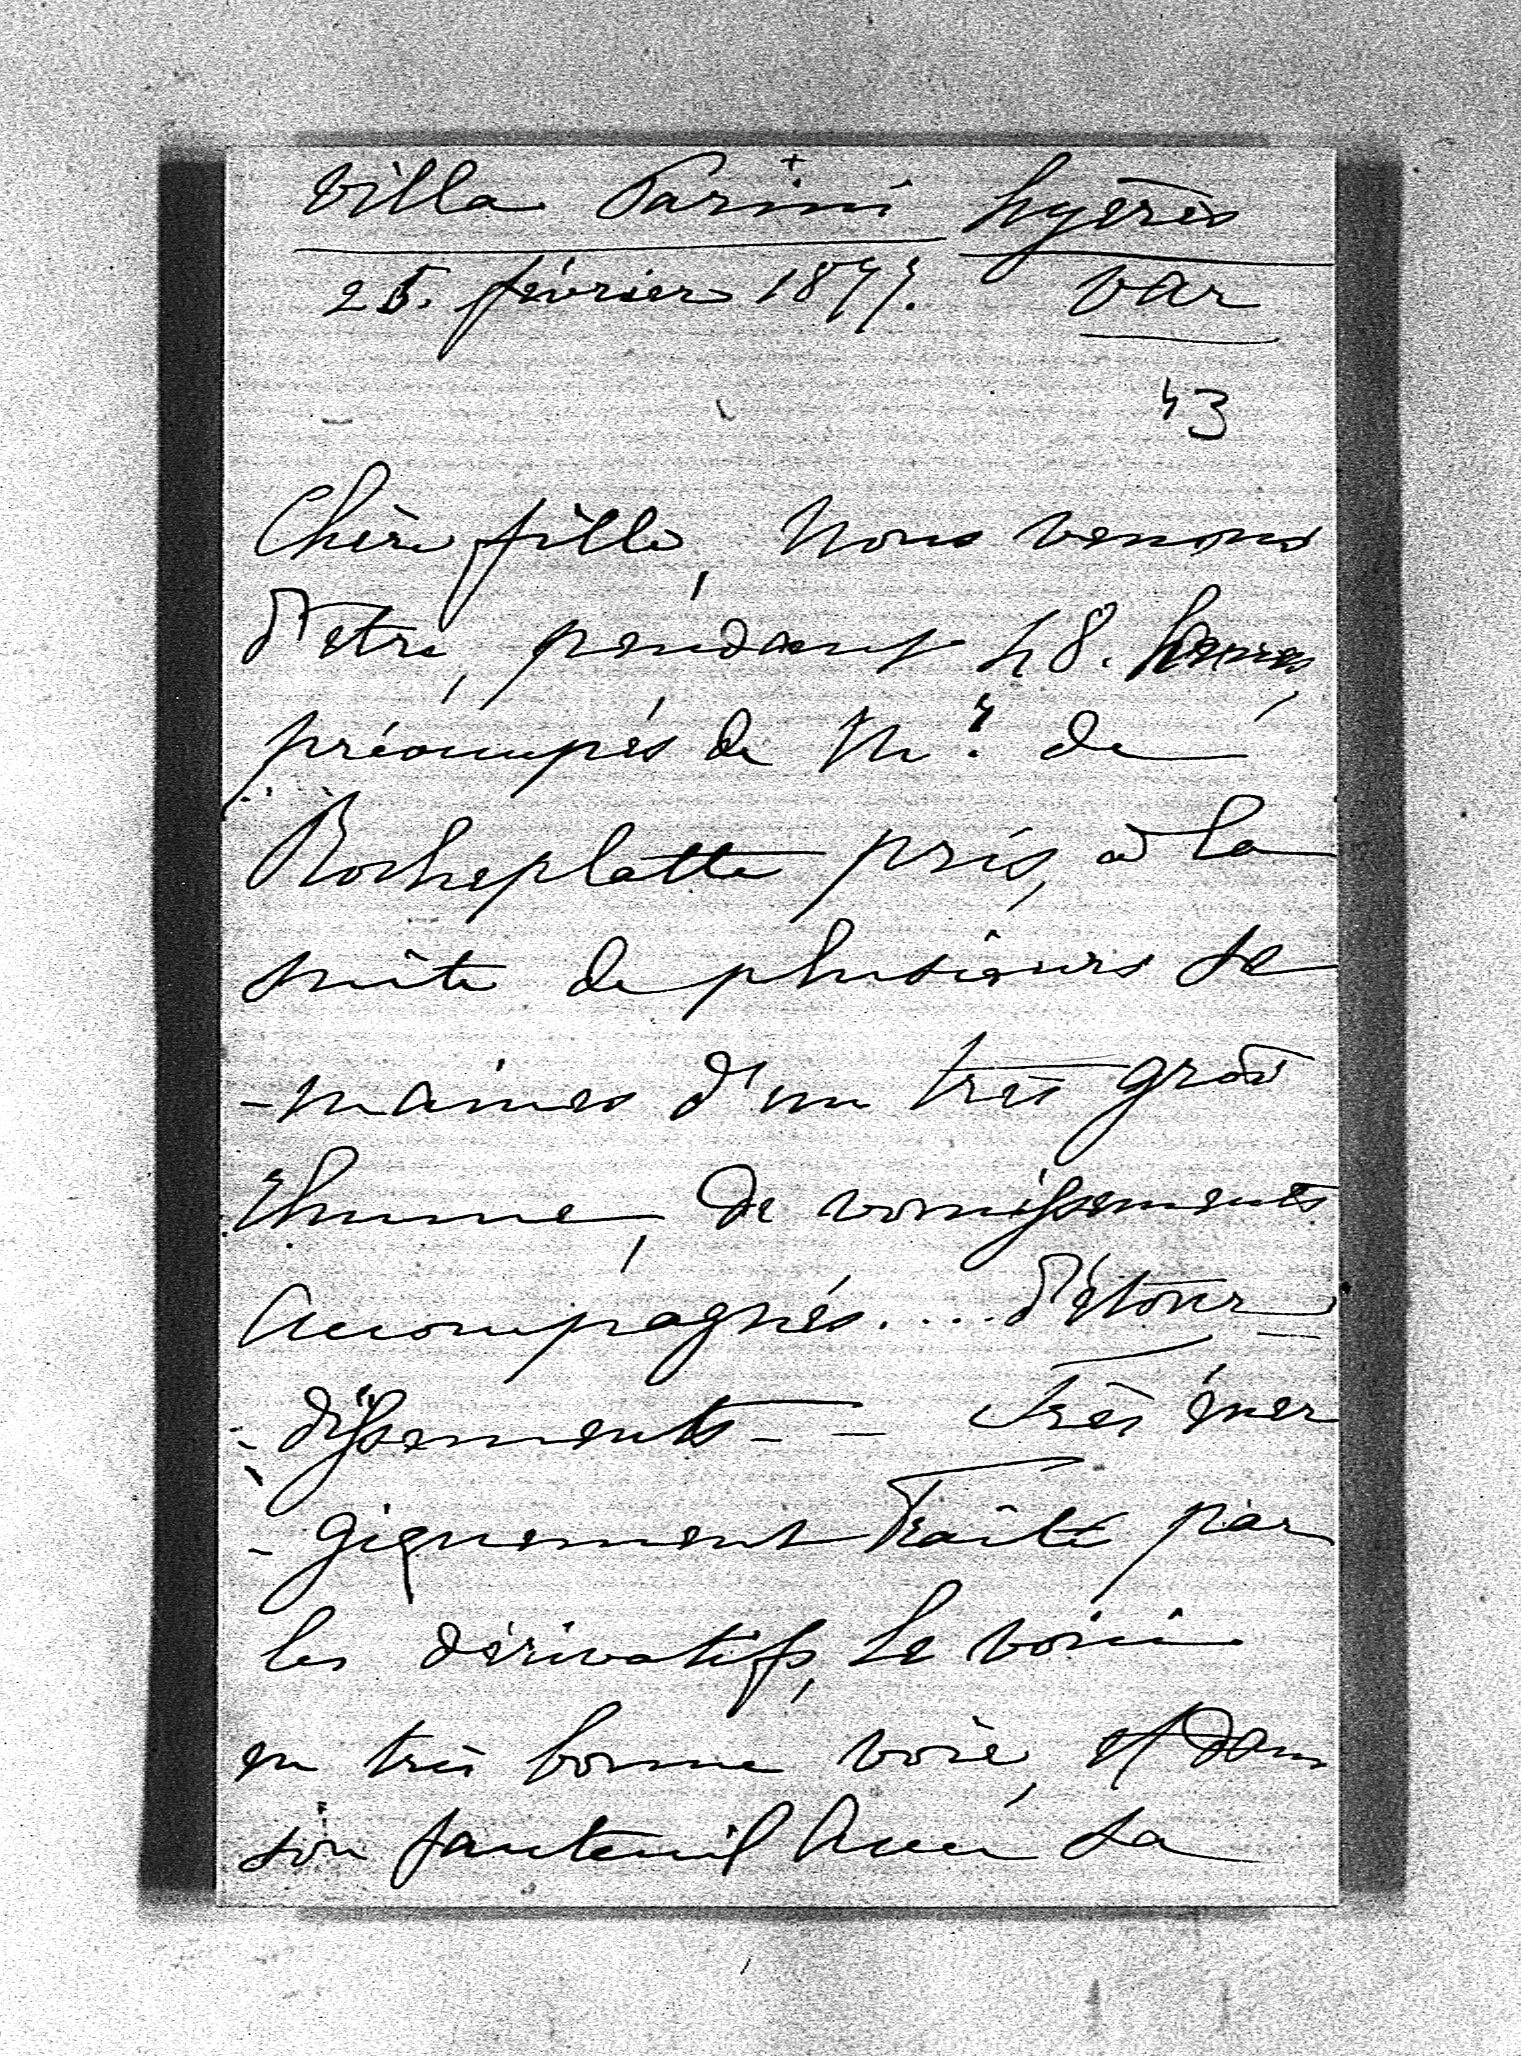 +
Villa Parini hyères
25. février 1877. Var
43
Chère fille, Nous venons
d'etre, pendant 48. heures,
préoccupés de Mr. de
Rocheplatte pris, à la
suite de plusieurs se
-maines d'un très gros
rhume, de vomissements
accompagnés.... d'étour-
-dissements -- Très éner
-giquement traité par
les dérivatifs, le voici
en très bonne voie, et dans
son fauteuil avec sa